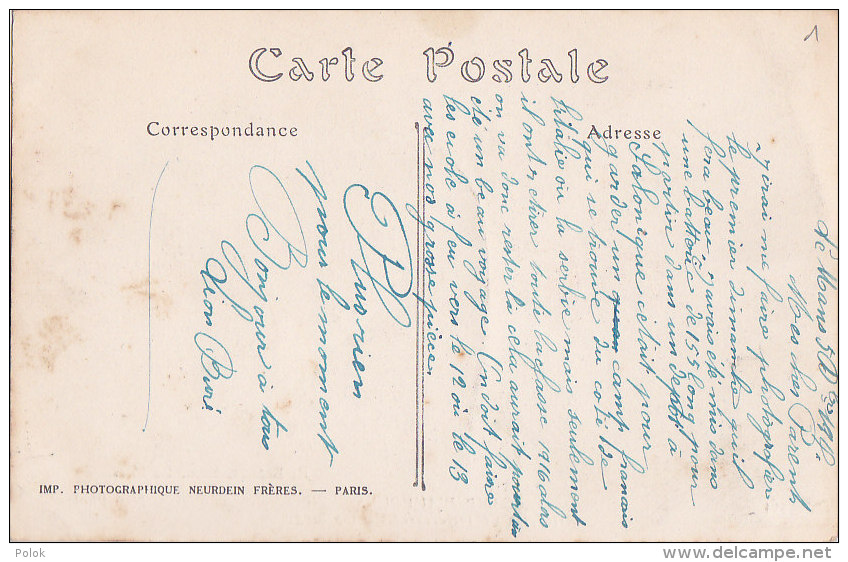 1
Carte Postale
Correspondance
Adresse
Le Mans 5 Dbre 1916
Mes chers Parents
J'irai me faire photografier
le premier dimanche quil
fera beau. J'avais été mis dans
une batterie de 155 long pour
partir dans un depot à
Salonique cetait pour
garder un camp francais
qui se trouve du coté de
litalie ou la serbie mais seulement
il ont retirer toute la classe 1916 alors
on va donc rester la cela aurait pourtan
été un beau voyage. On doit faire
les ecole à feu vers le 12 ou le 13
avec nos grosse pièce.
Plus rien
pour le moment
Bonjour à tous
IMP. PHOTOGRAPHIQUE NEURDEIN FRÈRES. — PARIS.
Polok
delcampe.net